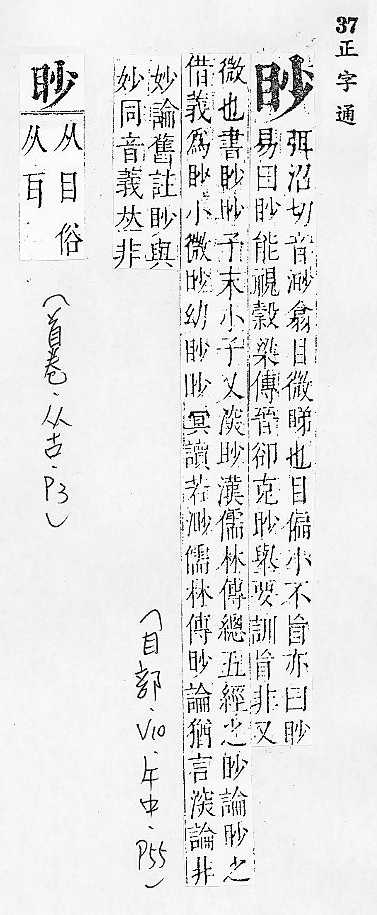 37 正字通
眇
弭沼切音渺翕目微睇也目偏小不盲亦曰眇
易曰眇能視穀梁傳晉郤克眇與要訓盲非又
微也書眇眇予末小子又深眇漢儒林傳總五經之眇論眇之
借義為眇小微眇幼眇眇冥讀若渺儒林傳眇論猶言深論非
妙論舊註眇與
妙同音義𠀤非
眇
从目俗
从百
(首卷.从古.P3)
(目部.V10.午中.P55)